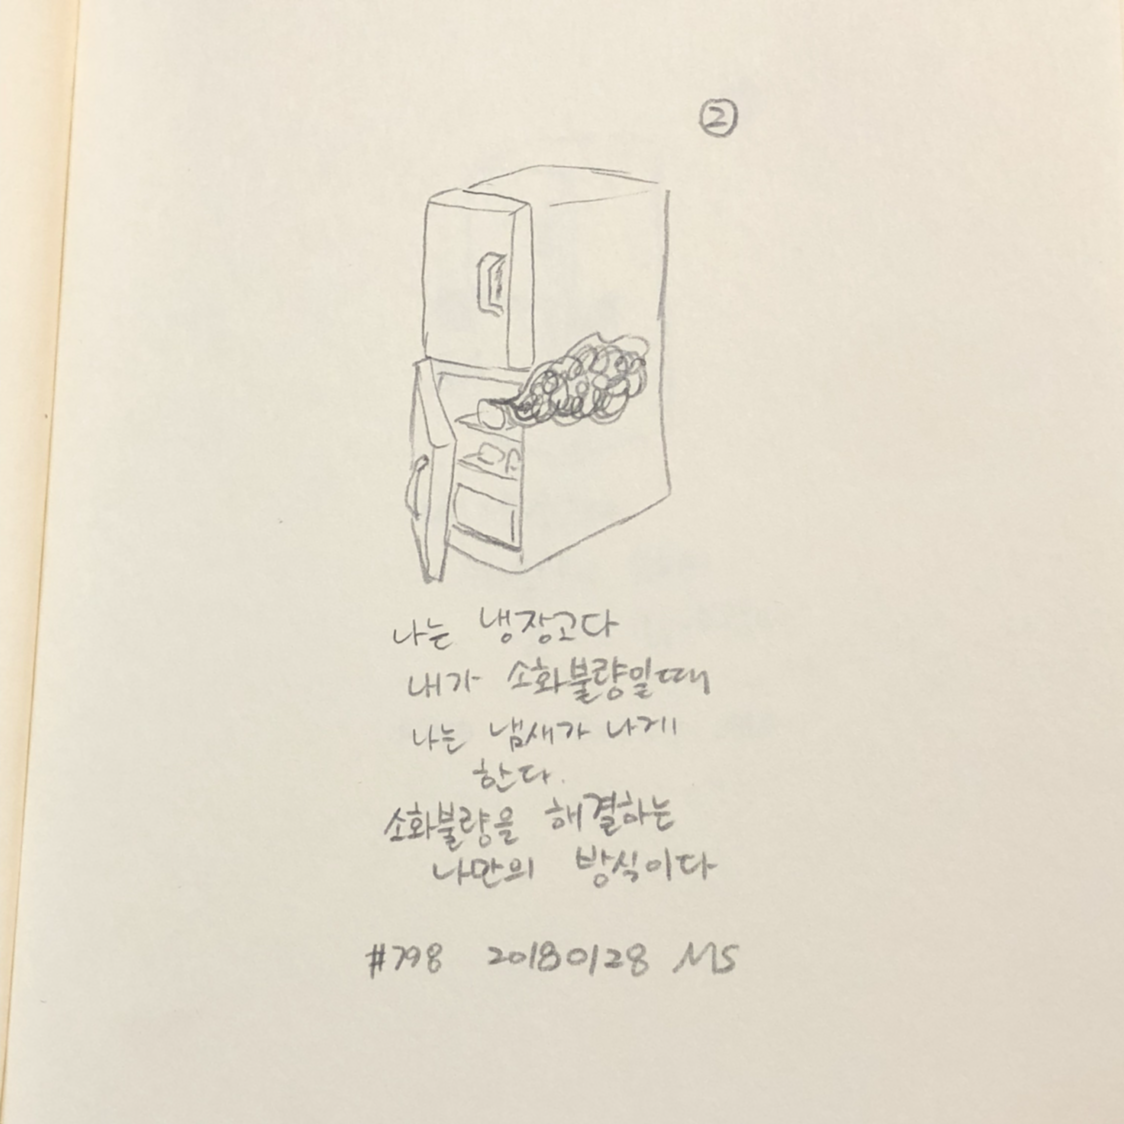 ②
나는 냉장고다
내가 소화불량일때
나는 냄새가 나게
한다.
소화불량을 해결하는
나만의 방식이다
#798 20180128 MS